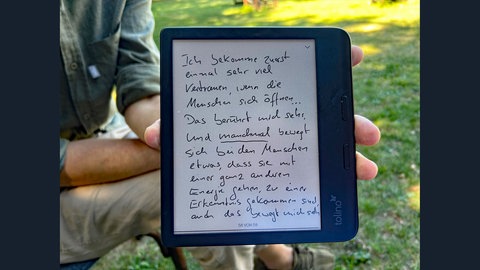 Ich bekomme zuerst
einmal sehr viel
Vertrauen, wenn die
Menschen sich öffnen...
Das berührt mich sehr,
und manchmal bewegt
sich bei den Menschen
etwas, dass sie mit
einer ganz anderen
Energie gehen, zu einer
Erkenntnis gekommen sind,
auch das bewegt mich sehr
tolino